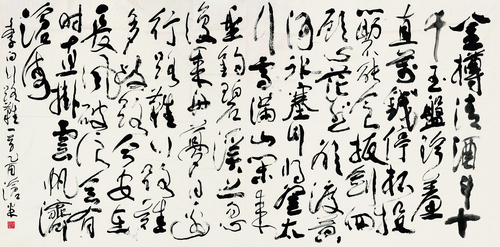 金樽清酒斗十
千玉盤珍羞
直萬錢停杯投
箸不能食拔劍四
顧心茫然欲渡黄
河冰塞川將登太
行雪滿山閑來
垂釣碧溪上忽
復乘舟夢日邊
行路難行路難
多歧路今安在
長風破浪會有
時直掛雲帆濟
滄海
李白行路難一首乙酉